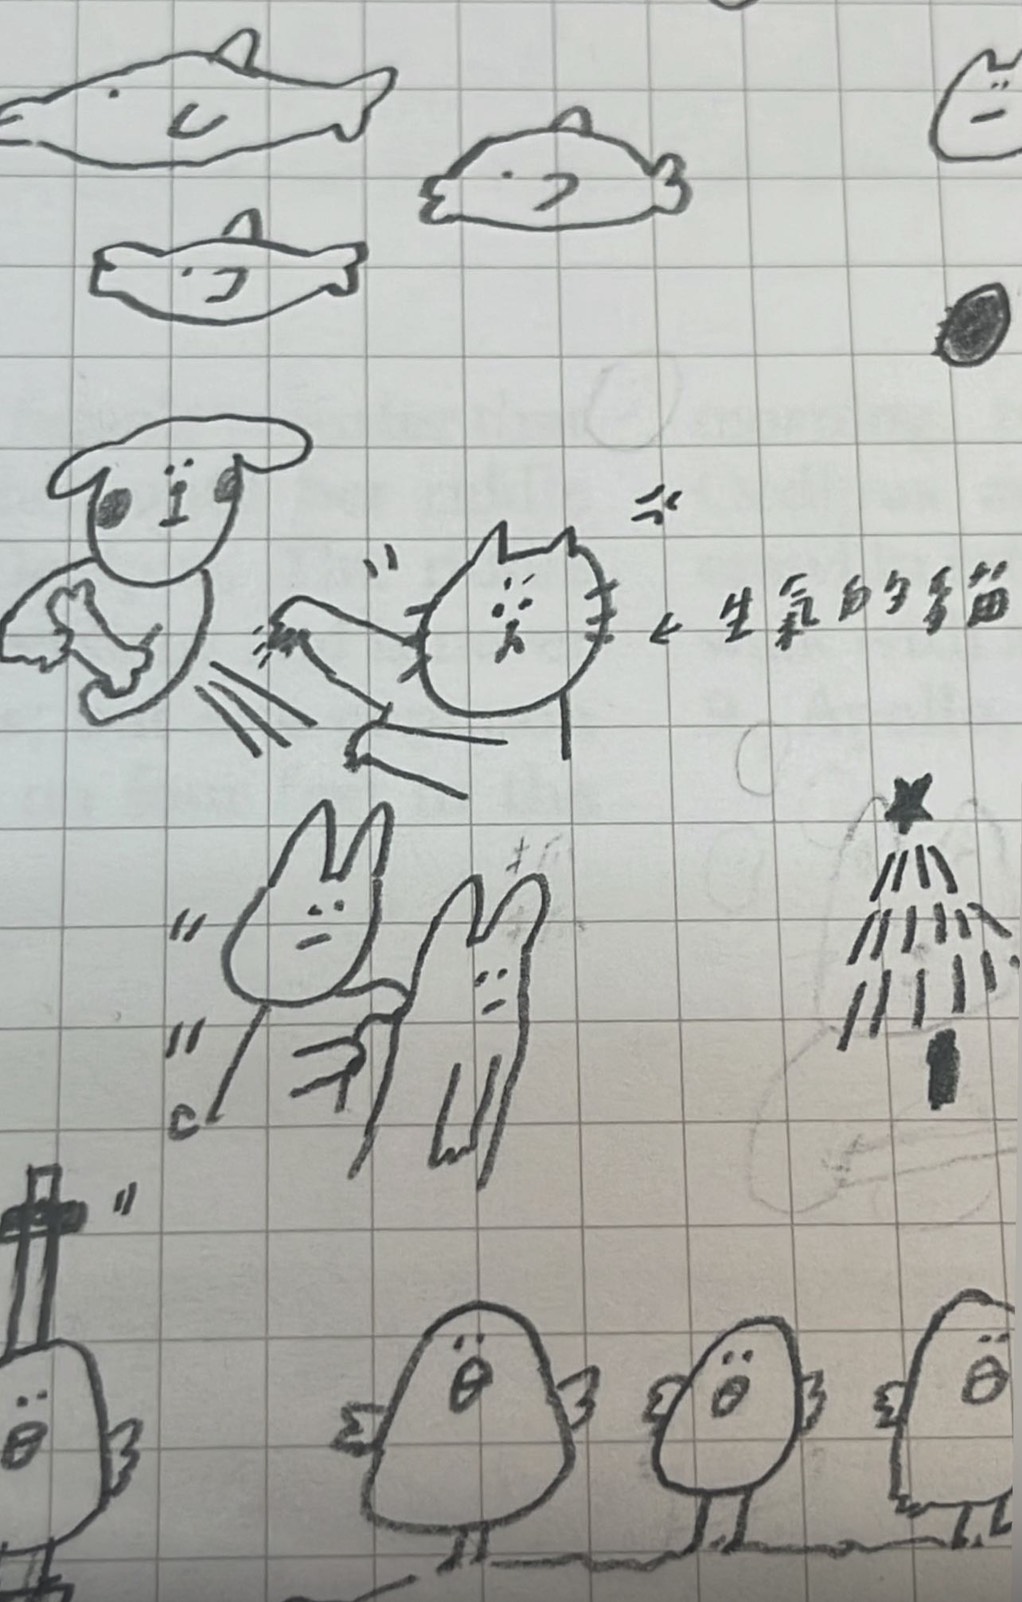 ← 生氣的貓